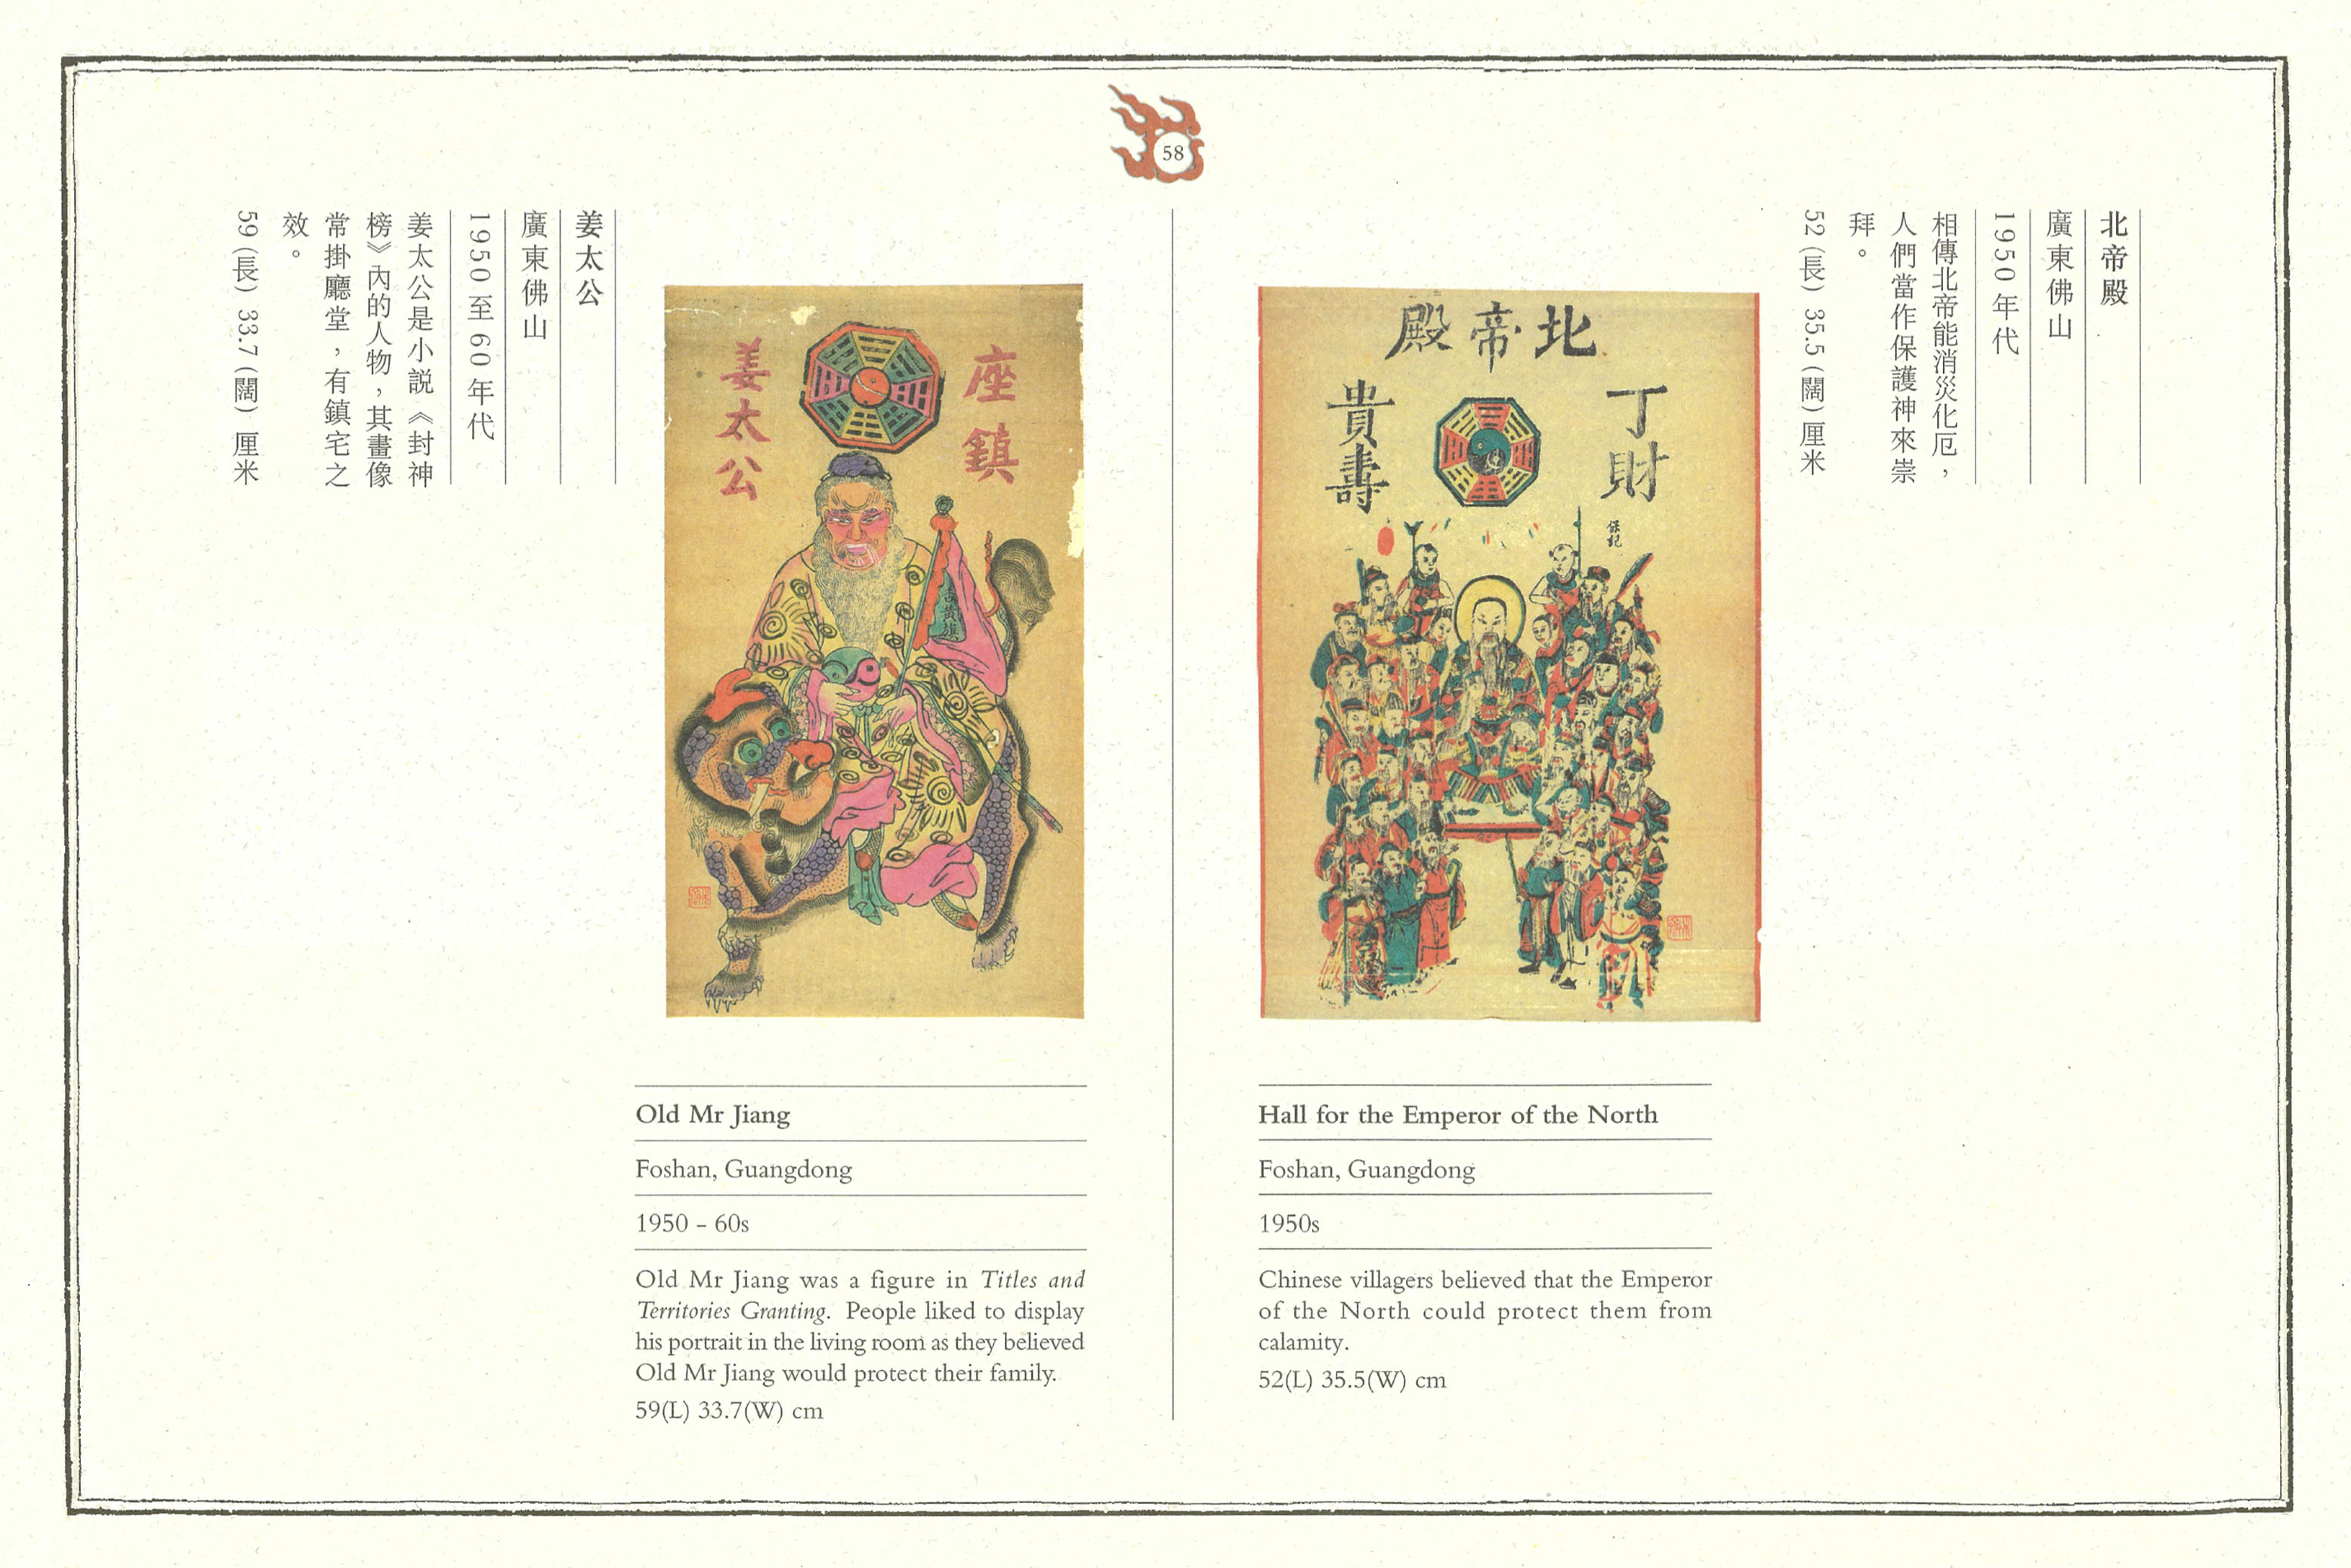 58
北帝殿
廣東佛山
1950年代
相傳北帝能消災化厄，
人們當作保護神來崇
拜。
52(長) 35.5(闊) 厘米
北帝殿
丁財
貴壽
保記
Hall for the Emperor of the North
Foshan, Guangdong
1950s
Chinese villagers believed that the Emperor
of the North could protect them from
calamity.
52(L) 35.5(W) cm
姜太公
廣東佛山
1950至60年代
姜太公是小説《封神
榜》內的人物，其畫像
常掛廳堂，有鎮宅之
效。
59(長) 33.7(闊) 厘米
座鎮
姜太公
Old Mr Jiang
Foshan, Guangdong
1950 – 60s
Old Mr Jiang was a figure in Titles and
Territories Granting. People liked to display
his portrait in the living room as they believed
Old Mr Jiang would protect their family.
59(L) 33.7(W) cm